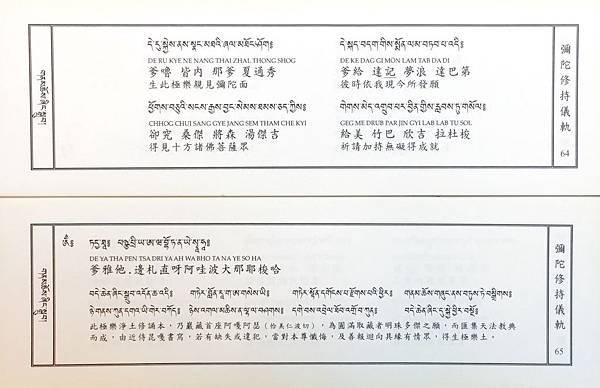 དེ་རུ་སྐྱེས་ནས་སྣང་མཐའི་ཞལ་མཐོང་ཤོག༔
DE RU KYE NE NANG THAI ZHAL THONG SHOG
爹嚕 皆內 那爹 夏通秀
生此極樂親見彌陀面
དེ་སྐད་བདག་གིས་སྨོན་ལམ་བཏབ་པ་འདི༔
DE KE DAG GI MÖN LAM TAB DA DI
爹給 達記 夢浪 達巴第
彼時依我現今所發願
ཕྱོགས་བཅུའི་སངས་རྒྱས་བྱང་སེམས་ཐམས་ཅད་ཀྱིས༔
CHHOG CHUI SANG GYE JANG SEM THAM CHE KYI
卻究 桑傑 將森 湯傑吉
得見十方諸佛菩薩眾
གེགས་མེད་འགྲུབ་པར་བྱིན་གྱིས་རླབས་ཏུ་གསོལ༔
GEG ME DRUB PAR JIN GYI LAB LAB TU SOL
給美 竹巴 欣吉 拉杜梭
祈請加持無礙得成就
彌陀修持儀軌
64
DE YA THA PEN TSA DRI YA AH WA BHO TA NA YE SO HA
爹雅他.邊札直呀阿哇波大那耶梭哈
བདེ་ཆེན་ཞིང་སྒྲུབ་འདོན་ཆ་འདི༔
གཏེར་སྟོན་དགོངས་པ་རྫོགས་པའི་ཕྱིར༔
གནམ་ཆོས་གཞུང་ནས་བཏུས་ཏེ་བསྒྲིགས༔
此極樂淨土修誦本，乃巖藏首座阿嘎阿瑟（拾美仁波切），為圓滿取藏者明珠多傑之願，而匯集天法教典
而成，由近侍昆嘎書寫，若有缺失或違犯，當對本尊懺悔，及善報迴向具緣有情眾，得生極樂土。
彌陀修持儀軌
65